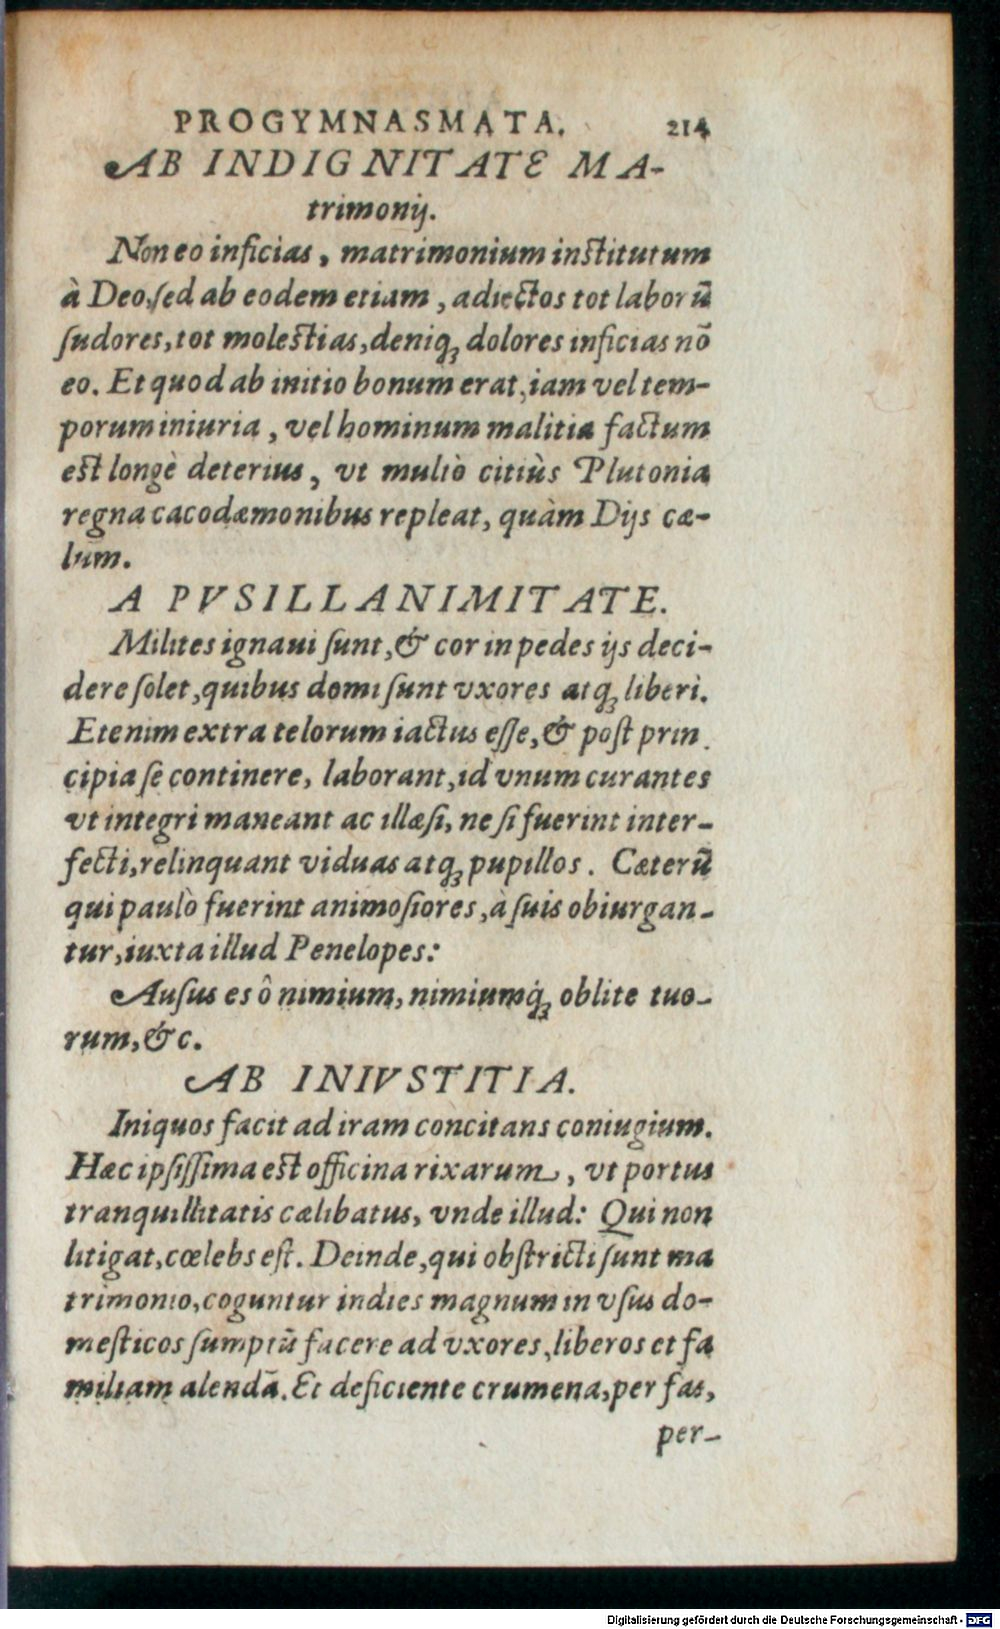 PROGYMNASMATA. 214
AB INDIGNITATE MA-
trimonij.
Non eo inficias, matrimonium institutum
à Deo, sed ab eodem etiam, adiectos tot laborũ
sudores, tot molestias, deniq; dolores inficias nõ
eo. Et quod ab initio bonum erat, iam vel tem-
porum iniuria, vel hominum malitia factum
est longè deterius, vt multò citiùs Plutonia
regna cacodæmonibus repleat, quàm Dijs cæ-
lum.
A PVSILLANIMITATE.
Milites ignaui sunt, & cor in pedes ijs deci-
dere solet, quibus domi sunt vxores atq; liberi.
Etenim extra telorum iactus esse, & post prin
cipia se continere, laborant, id vnum curantes
vt integri maneant ac illæsi, ne si fuerint inter-
fecti, relinquant viduas atq; pupillos. Cæterũ
qui paulò fuerint animosiores, à suis obiurgan-
tur, iuxta illud Penelopes:
Ausus es ô nimium, nimiumq; oblite tuo-
rum, &c.
AB INIVSTITIA.
Iniquos facit ad iram concitans coniugium.
Hæc ipsissima est officina rixarum, vt portus
tranquillitatis cælibatus, vnde illud: Qui non
litigat, cœlebs est. Deinde, qui obstricti sunt ma
trimonio, coguntur indies magnum in vsus do-
mesticos sumptũ facere ad vxores, liberos et fa
miliam alendã. Et deficiente crumena, per fas,
per-
Digitalisierung gefördert durch die Deutsche Forschungsgemeinschaft - DFG